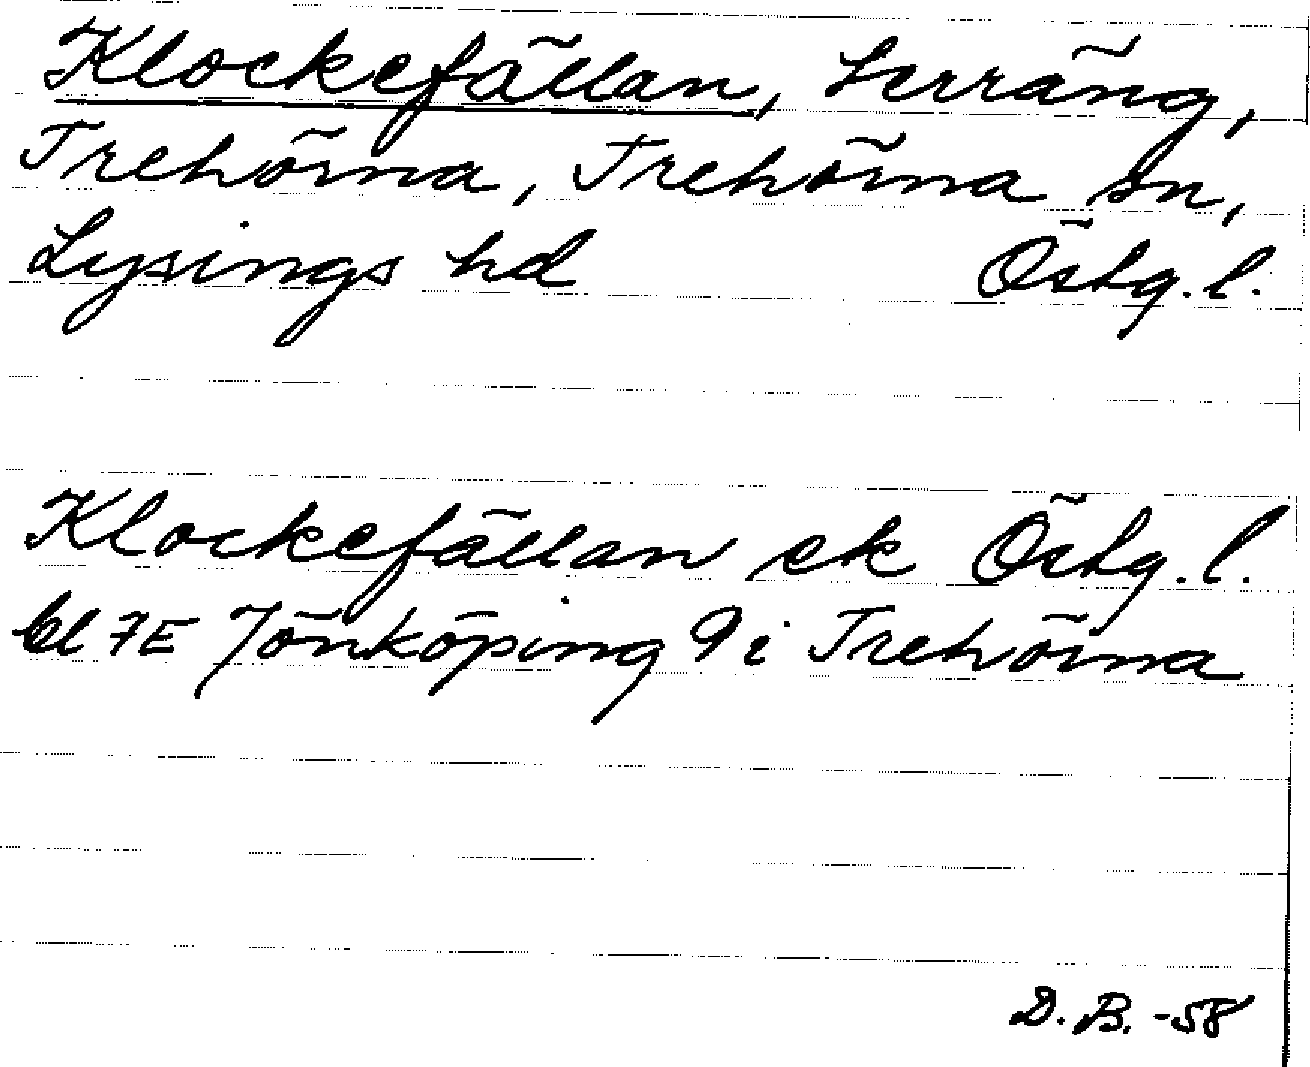 Klockefällan, terräng,
Trehörna, Trehörna sn,
Lysings hd Östg.l.
Klockefällan ek Östg.l.
bl 7E Jönköping 9 i Trehörna
D.B. -58